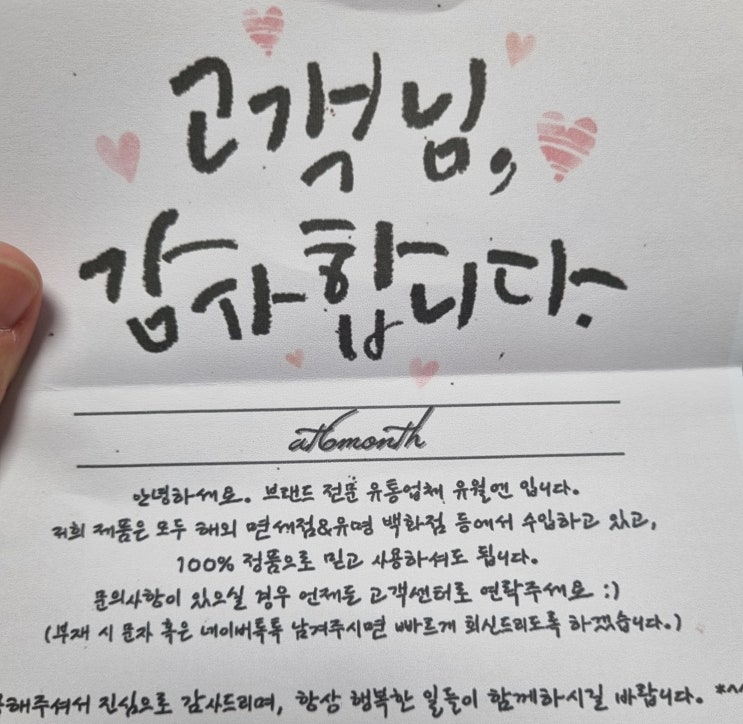 고객님,
감사합니다.
at6month
안녕하세요. 브랜드 전문 유통업체 유월엔 입니다.
저희 제품은 모두 해외 면세점&유명 백화점 등에서 수입하고 있고,
100% 정품으로 믿고 사용하셔도 됩니다.
문의사항이 있으실 경우 언제든 고객센터로 연락주세요 :)
(부재 시 문자 혹은 네이버톡톡 남겨주시면 빠르게 회신드리도록 하겠습니다.)
해주셔서 진심으로 감사드리며, 항상 행복한 일들이 함께하시길 바랍니다. *^^